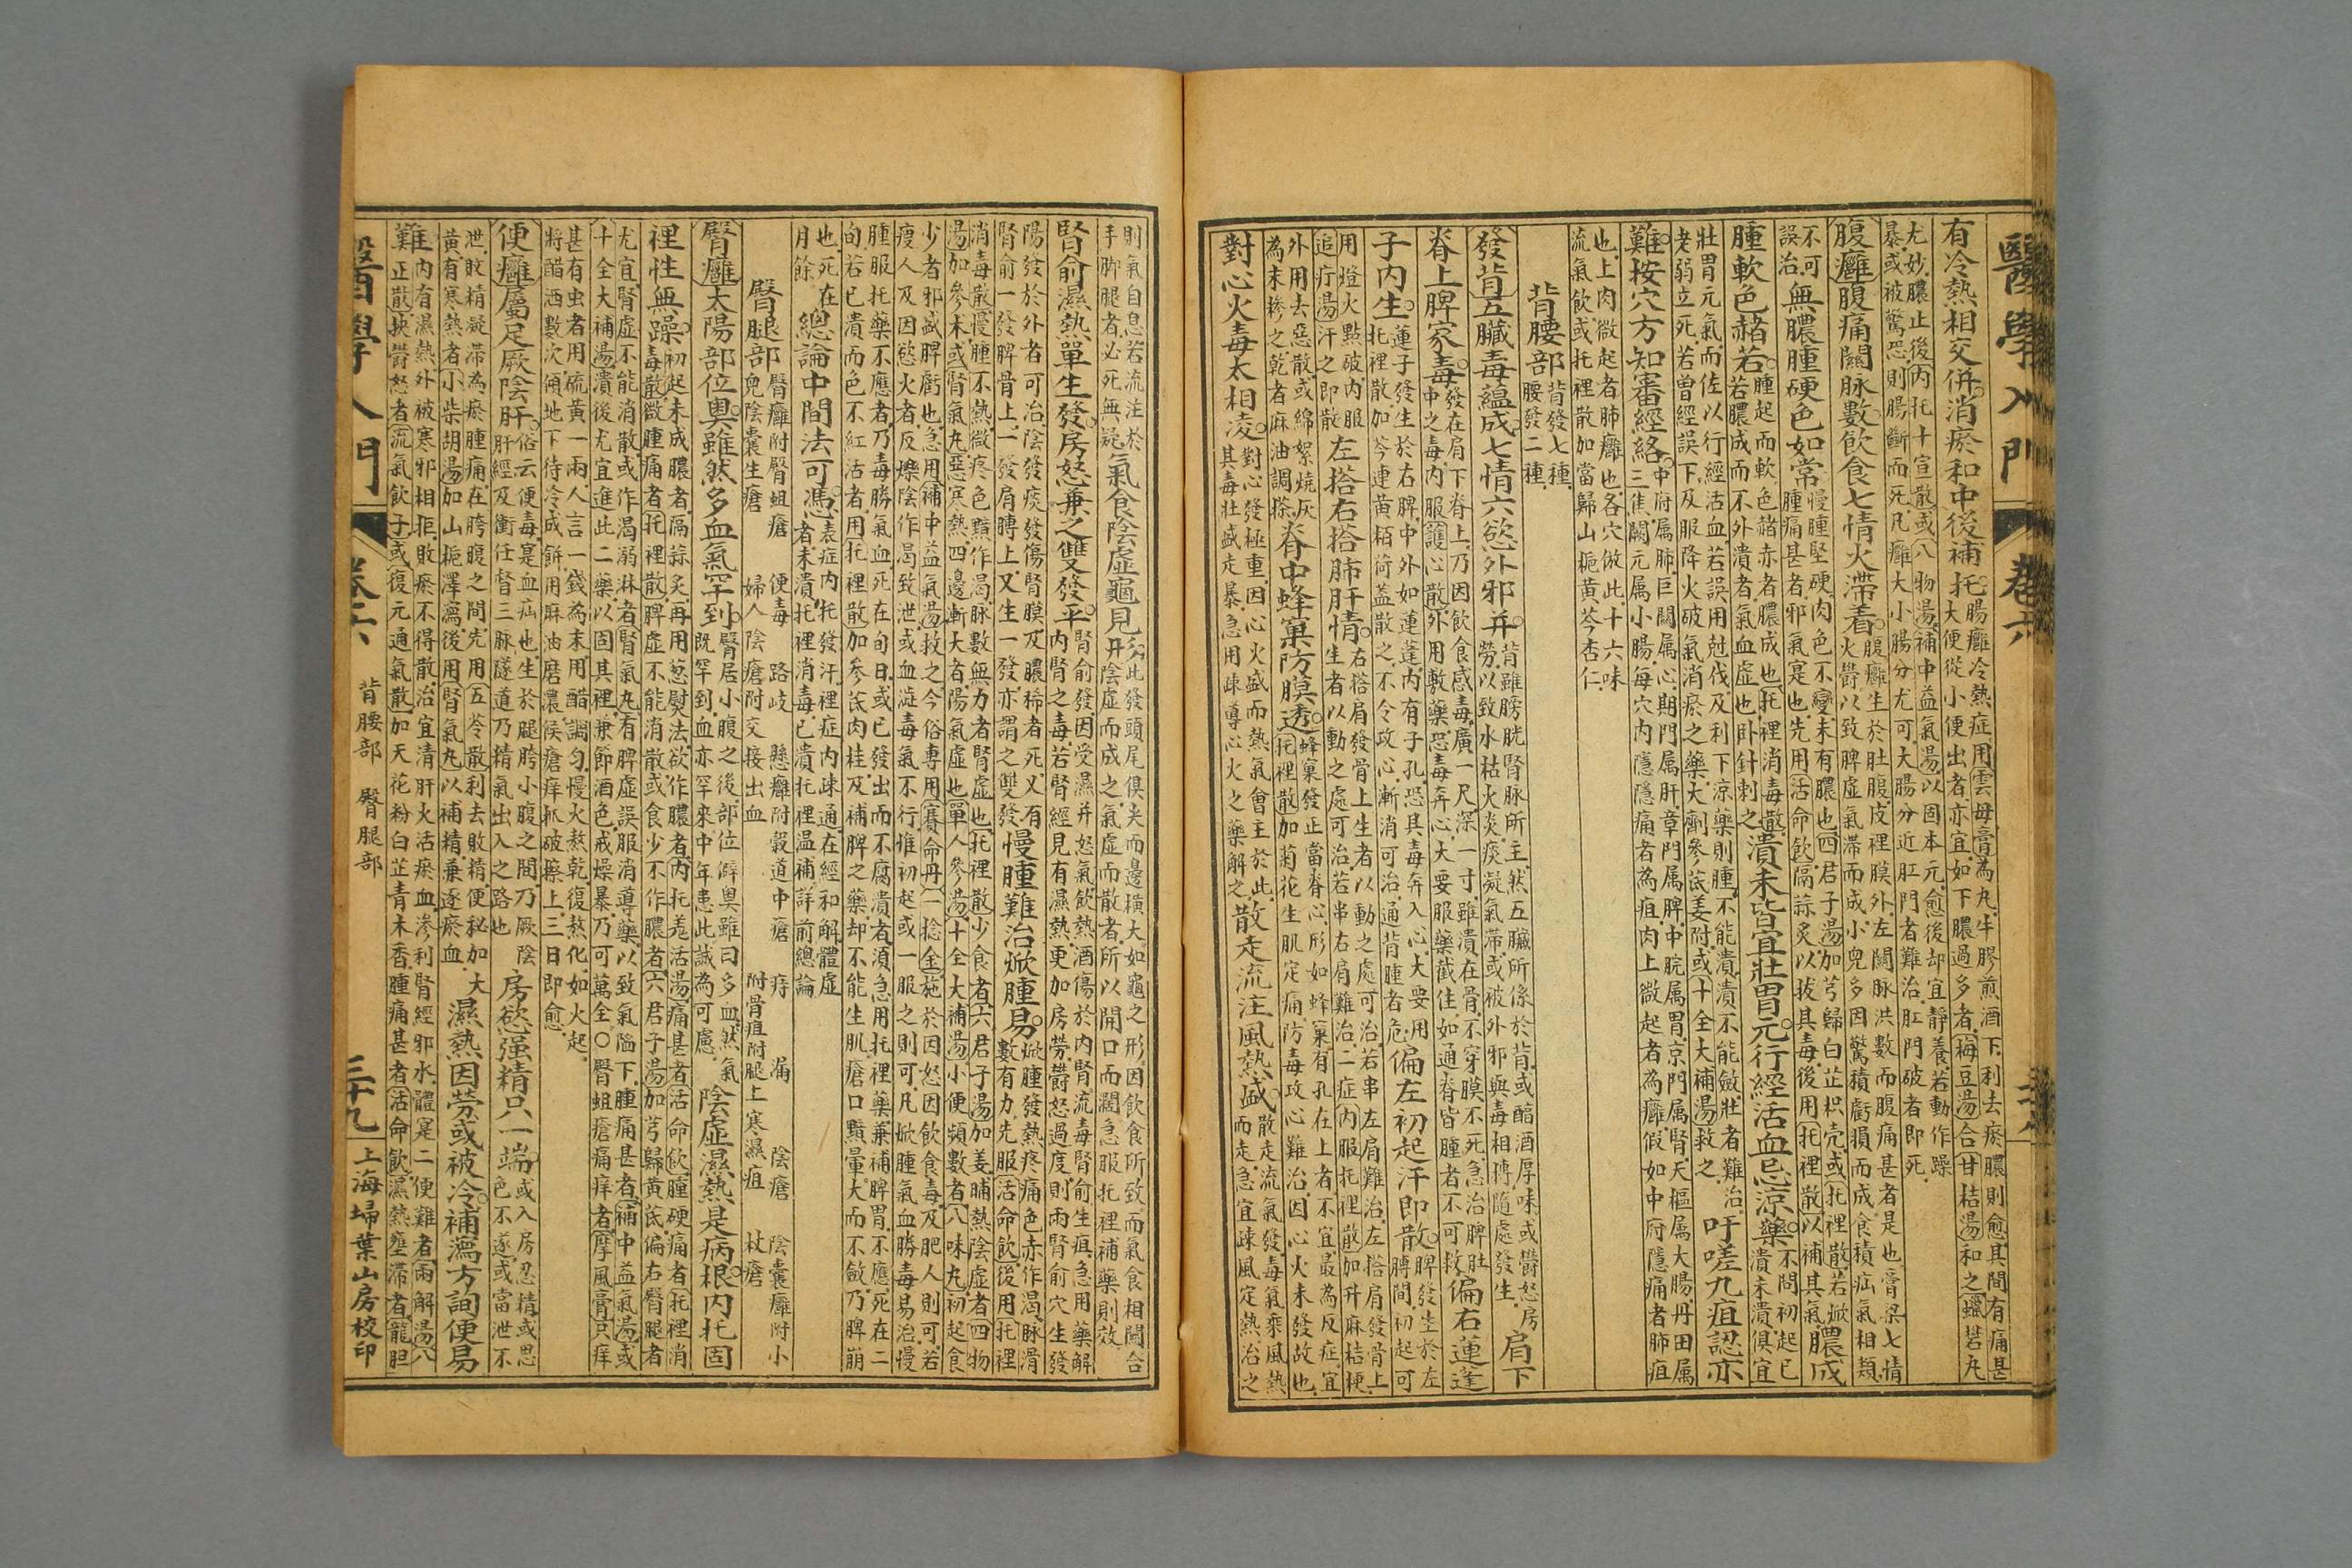 醫學入門 卷六
有冷熱相交併消瘀和中後補托腸癰冷熱症用雲母膏為丸牛膠煎酒下利去瘀膿則愈其間有痛甚
大便從小便出者亦宜如下膿過多者梅豆湯合甘桔湯和之蠟礬丸
尤妙膿止後內托十宣散或八物湯補中益氣湯以固本元愈後却宜靜養若動作躁
暴或被驚恐則腸斷而死凡癰大小腸分尤可大腸分近肛門者難治肛門破者即死
腹癰腹痛關脉數飲食七情火滯着腹癰生於肚腹皮裡膜外左關脉洪數而腹痛甚者是也膏梁七情
火鬱以致脾虛氣滯而成小兒多因驚積虧損而成食積疝氣相類
不可誤治無膿腫硬色如常慢腫堅硬肉色不變未有膿也四君子湯加芎歸白芷枳壳或托裡散若焮
腫痛甚者邪氣寔也先用活命飲隔蒜炙以拔其毒後用托裡散以補其氣膿成
腫軟色赭若腫起而軟色赭赤者膿成也托裡消毒散
若膿成而不外潰者氣血虛也卧針刺之潰未皆宜壯胃元行經活血忌涼藥不問初起已
潰未潰俱宜
壯胃元氣而佐以行經活血若誤用尅伐及利下涼藥則腫不能潰潰不能斂壯者難治
老弱立死若曾經誤下及服降火破氣消瘀之藥大劑參芪姜附或十全大補湯救之吁嗟九疽認亦
難按穴方知審經絡中府属肺巨闕属心期門属肝章門属脾中脘属胃京門属腎天樞属大腸丹田属
三焦關元属小腸每穴內隱隱痛者為疽肉上微起者為癰假如中府隱痛者肺疽
也上肉微起者肺癰也各穴倣此十六味
流氣飲或托裡散加當歸山梔黃芩杏仁
背腰部背發七種
腰發二種
發背五臟毒蘊成七情六慾外邪并背雖膀胱腎脉所主然五臟所係於背或醇酒厚味或鬱怒房
勞以致水枯火炎痰凝氣滯或被外邪與毒相搏隨處發生肩下
脊上脾家毒發在肩下脊上乃因飲食感毒廣一尺深一寸雖潰在骨不穿膜不死急治脾肚
中之毒內服護心散外用敷藥恐毒奔心大要服藥截住如通脊皆腫者不可救偏右蓮蓬
子內生蓮子發生於右脾中外如蓮蓬內有子孔恐其毒奔入心大要用
托裡散加芩連黃栢荷蓋散之不令攻心漸消可治通背腫者危偏左初起汗即散脾發生於左
膊間初起可
用燈火㸃破內服
追疔湯汗之即散左搭右搭肺肝情右搭肩發骨上生者以動之處可治若串左肩難治左搭肩發骨上
生者以動之處可治若串右肩難治二症內服托裡散加升麻桔梗
外用去惡散或綿絮燒灰
為末摻之乾者麻油調搽脊中蜂窠防膜透蜂窠發正當脊心形如蜂窠有孔在上者不宜最為反症宜
托裡散加菊花生肌定痛防毒攻心難治因心火未發故也
對心火毒太相凌對心發極重因心火盛而熱氣會主於此
其毒壯盛走暴急用疎導心火之藥解之散走流注風熱盛散走流氣發毒氣乘風熱
而走急宜疎風定熱治之
則氣自息若流注於
手脚腿者必死無疑氣食陰虛龜見形此發頭尾俱尖而邊橫大如龜之形因飲食所致而氣食相關合
陰虛而成之氣虛而散者所以開口而濶急服托裡補藥則效
腎俞濕熱單生發房怒兼之雙發平腎俞發因受濕并怒氣飲熱酒傷於內腎流毒腎俞生疽急用藥解
內腎之毒若腎經見有濕熱更加房勞鬱怒過度則兩腎俞穴生發
陽發於外者可治陰發痰發傷腎膜及膿稀者死又有
腎俞一發脾骨上一發肩膊上又生一發亦謂之雙發慢腫難治焮腫易焮腫發熱疼痛色赤作渴脉滑
數有力先服活命飲後用托裡
消毒散慢腫不熱微疼色黯作渴脉數無力者腎虛也托裡散少食者六君子湯加姜晡熱陰虛者四物
湯加參朮或腎氣丸惡寒熱四邊漸大者陽氣虛也單人參湯十全大補湯小便頻數者八味丸初起食
少者邪盛脾虧也急用補中益氣湯救之今俗専用賽命丹一捻金施於因怒因飲食毒及肥人則可若
瘦人及因慾火者反爍陰作渴致泄或血澁毒氣不行惟初起或一服之則可凡焮腫氣血勝毒易治慢
腫服托藥不應者乃毒勝氣血死在旬日或已發出而不腐潰者須急用托裡藥兼補脾胃不應死在二
旬若已潰而色不紅活者用托裡散加參芪肉桂及補脾之藥却不能生肌瘡口黯暈大而不斂乃脾崩
也死在
月餘總論中間法可馮表症內托發汗裡症內疎通在經和解體虛
者未潰托裡消毒已潰托裡温補詳前總論
臀腿部臀癰附臀蛆瘡 便毒 路岐 懸癰附穀道中瘡 痔 漏 陰瘡 陰囊癰附小
兒陰囊生瘡 婦人陰瘡附交接出血 附骨疽附腿上寒濕疽 杖瘡
臀癰太陽部位奧雖然多血氣罕到臀居小腹之後部位僻奥雖曰多血然氣
既罕到血亦罕來中年患此誠為可慮陰虛濕熱是病根內托固
裡性無躁初起未成膿者隔蒜炙再用葱熨法欲作膿者內托羗活湯痛甚者活命飲腫硬痛者托裡消
毒散微腫痛者托裡散脾虛不能消散或食少不作膿者六君子湯加芎歸黃芪偏右臀腿者
尤宜腎虛不能消散或作渴溺淋者腎氣丸有脾虛誤服消導藥以致氣陷下腫痛甚者補中益氣湯或
十全大補湯潰後尤宜進此二藥以固其裡兼節酒色戒燥暴乃可萬全○臀蛆瘡痛痒者摩風膏只痒
甚有虫者用硫黃一兩人言一錢為末用醋調勻慢火熬乾復熬化如火起
將醋洒數次傾地下待冷成餅用麻油磨濃候瘡痒抓破搽上三日即愈
便癰屬足厥陰肝俗云便毒寔血疝也生於腿胯小腹之間乃厥陰
肝經及衝任督三脉隧道乃精氣出入之路也房慾强精只一端或入房忍精或思
色不遂或當泄不
泄敗精凝滯為瘀腫痛在胯腹之間先用五苓散利去敗精便秘加大
黃有寒熱者小柴胡湯加山梔澤瀉後用腎氣丸以補精兼逐瘀血濕熱因劳或被冷補瀉方詢便易
難內有濕熱外被寒邪相拒敗瘀不得散治宜清肝火活瘀血滲利腎經邪水體寔二便難者兩解湯八
正散挾鬱怒者流氣飲子或復元通氣散加天花粉白芷青木香腫痛甚者活命飲濕熱壅滯者龍胆
醫學入門 卷六 背腰部 臀腿部 三十九 上海埽葉山房校印